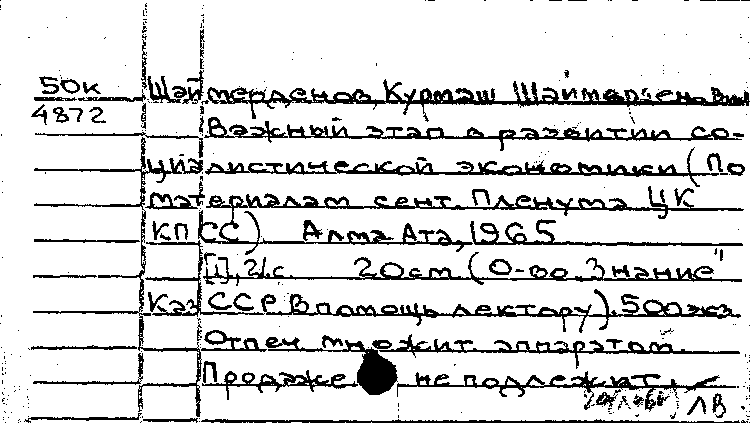 50к Шаймерденов, Курмаш Шаймерденович
4872
Важный этап в развитии со-
циалистической экономики (По
материалам сент. Пленума ЦК
КПСС) Алма Ата, 1965
[1], 21с. 20см (О-во „Знание"
КазССР. В помощь лектору). 500экз.
Отпеч множит. аппаратом.
Продаже не подлежит.
ЛВ